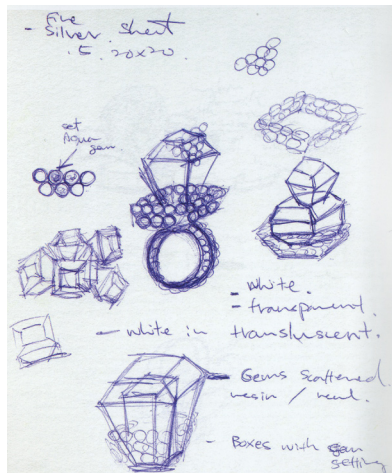 - Fine
Silver. sheet
.5. 20x20.
set
aqua
gem
- white.
- transparent.
- white in transluscent.
- Gems Scattered
resin /
- Boxes with gem
setting